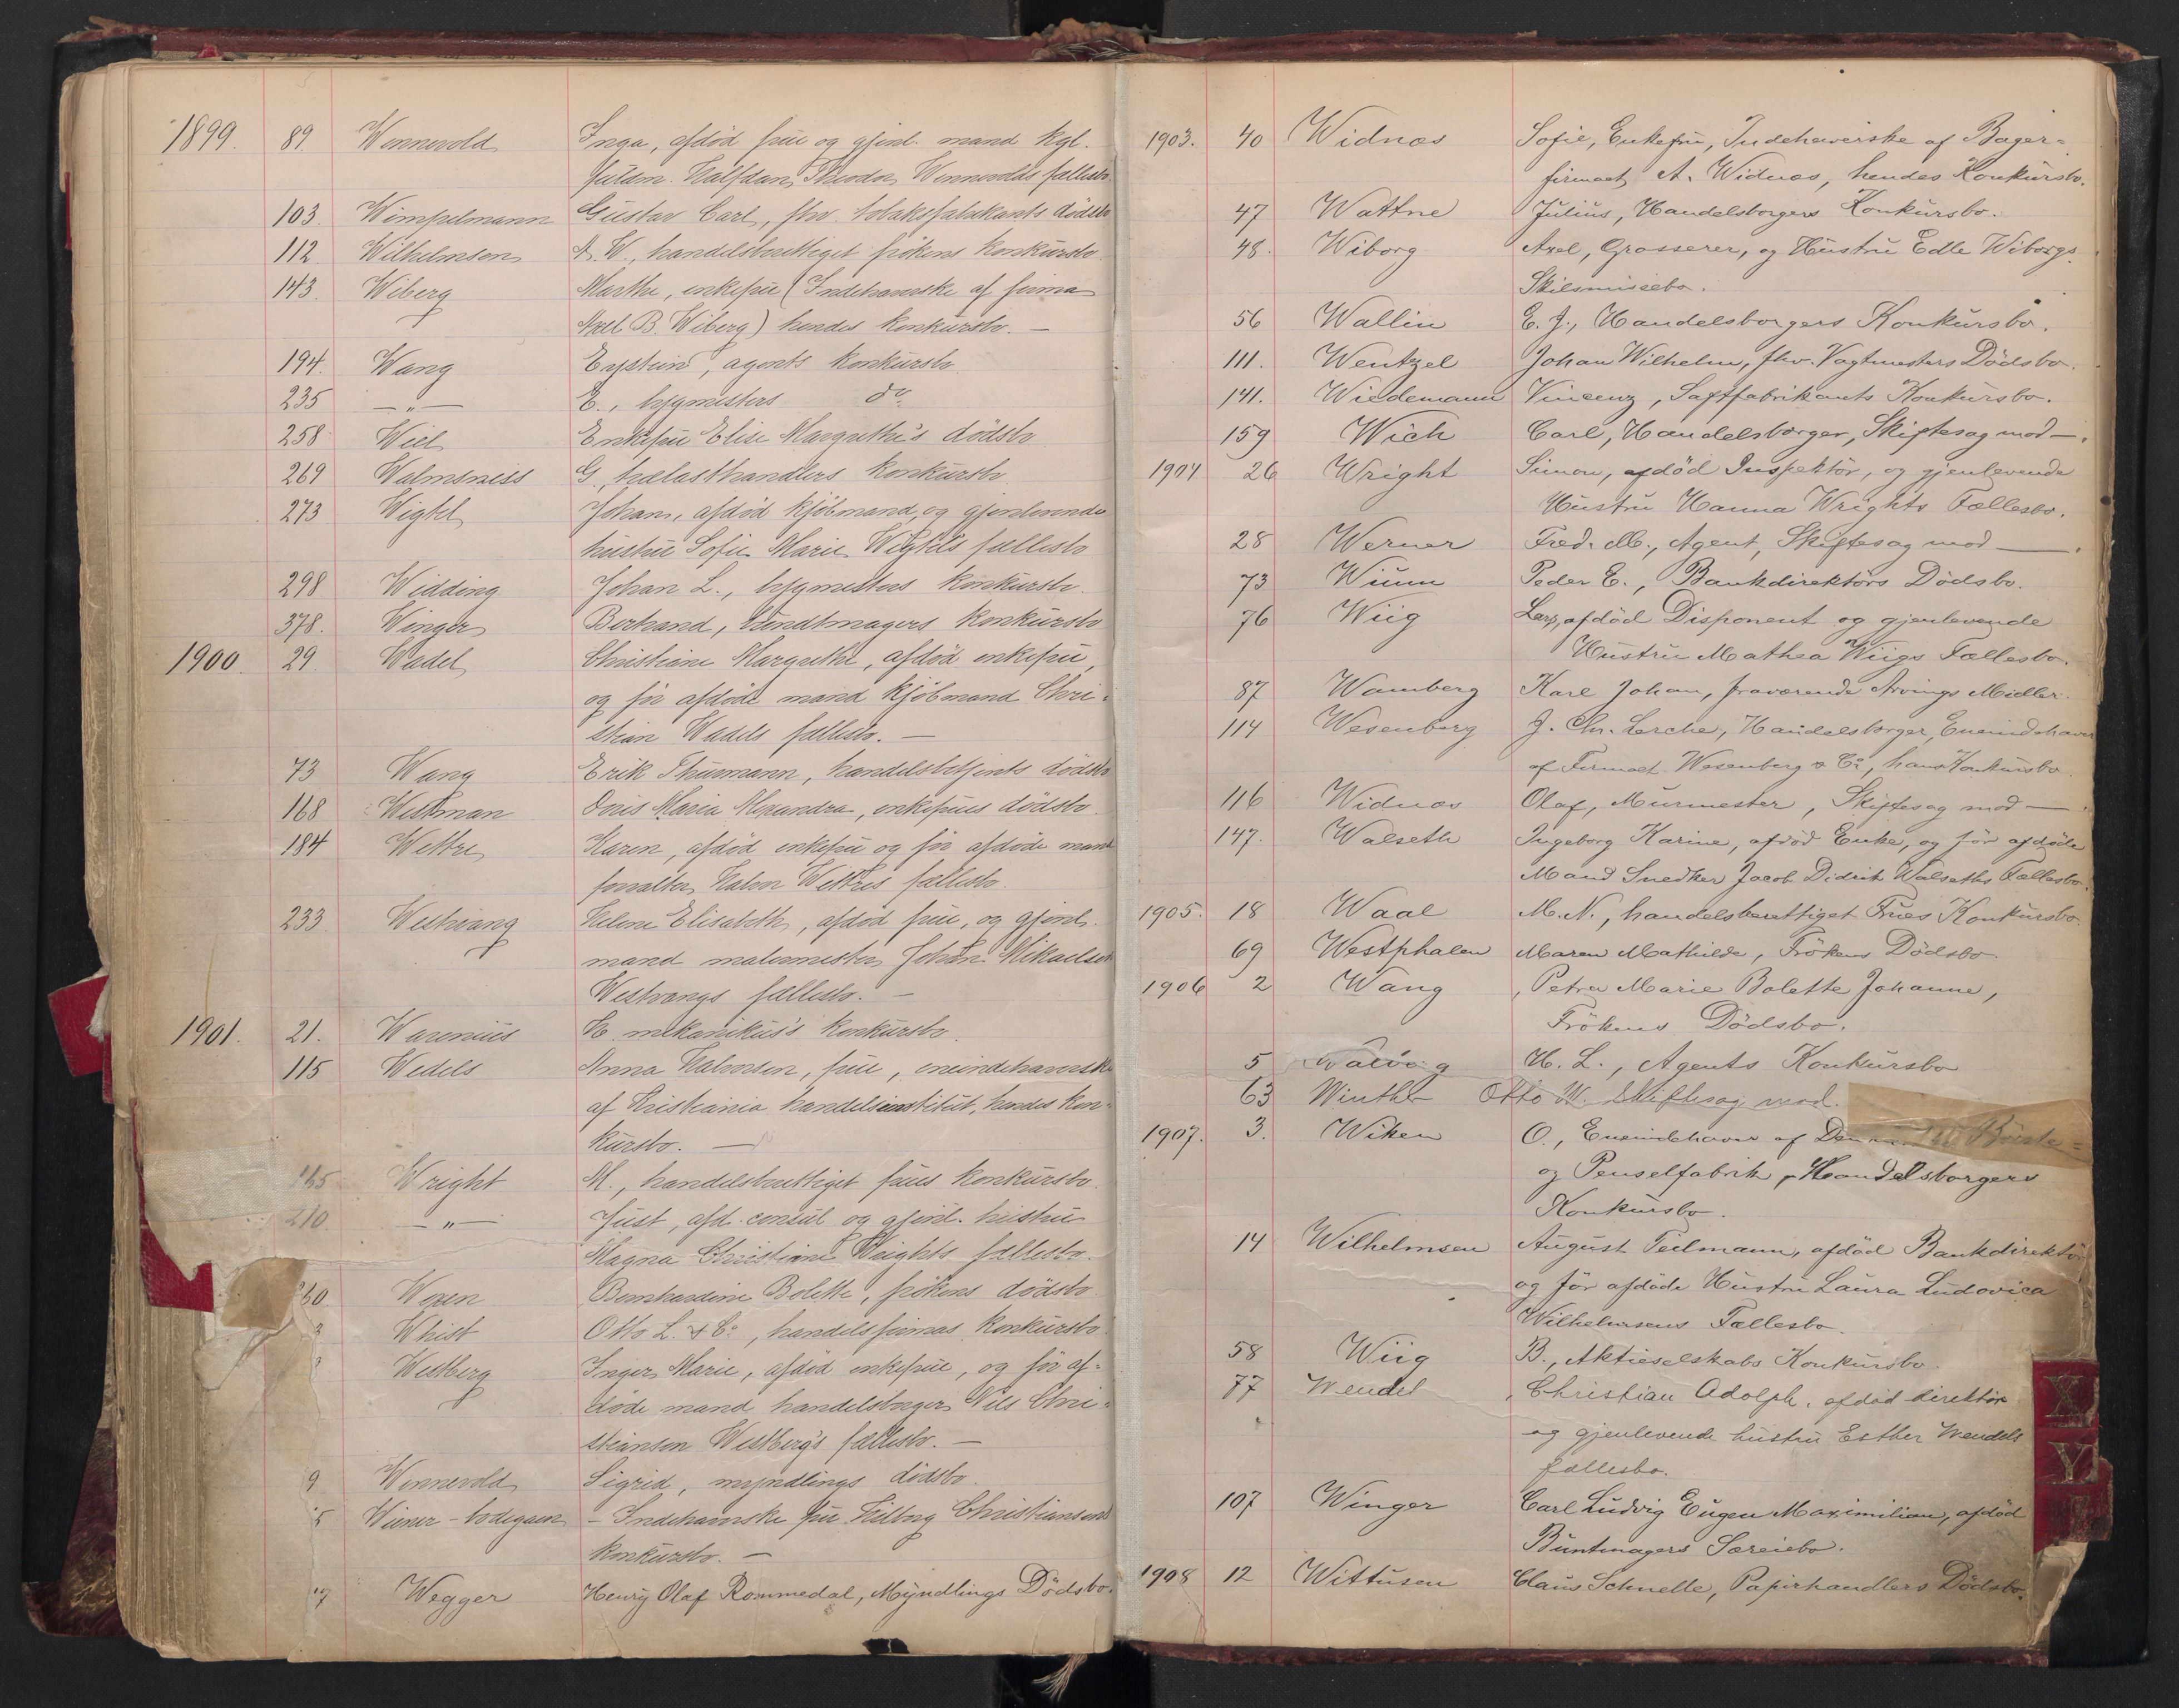 1899. 89 Wennevold Inga, afdød frue og gjenl. mand kgl.
fuldm. Halfdan Theodor Wennevolds fællesbo.
103. Wimpelmann Gustav Carl, fhv. tobaksfabrikants dødsbo
112 Wilhelmsen A. W., handelsberettiget frökens konkursbo.
143. Wiberg Marthe, enkefrue (Indehaverske af firma
Axel B. Wiberg) hendes konkursbo. —
194. Wang Eystein, agents konkursbo.
235 — " — E., bygmesters do
258 Wiel Enkefrue Elise Margrethe's dødsbo
269 Walmsness G., trælasthandlers konkursbo
273 Wigtel Johan, afdød kjöbmand, og gjenlevende
hustru Sofie Marie Wigtels fællesbo
298 Widding Johan L., bygmesters konkursbo.
378. Winger Bertrand, bundtmagers konkursbo
1900. 29. Wadel Christiane Margrethe, afdød enkefrue,
og för afdöde mand kjöbmand Chri-
stian Wadels fællesbo. —
73 Wang Erik Thurmann, handelsbetjents dødsbo
168 Westman Doris Maria Alexandra, enkefrues dødsbo.
184 Wettre Karen, afdød enkefrue og för afdöde mand
forvalter Halvor Wettres fællesbo.
233 Westvang Helene Elisabeth, afdød frue, og gjenl.
mand malermester Johan Mikaelsen
Westvangs fællesbo. —
1901. 21. Warenius H. mekanikus's konkursbo.
115 Wedels Anna Halvorsen, frue, eneindehaverske
af Kristiania handelsinstitut, hendes kon-
kursbo. —
165 Wright M., handelsberettiget frues konkursbo.
210 — " — Just, afd. consul og gjenl. hustru
Magna Christiane Wrights fællesbo.
60 Wexen Bernhardine Bolette, frökens dødsbo
3 Whist Otto L. & Co, handelsfirmas konkursbo.
Westberg Inger Marie, afdød enkefrue, og för af-
döde mand handelsborger Nils Chri-
stiansen Westberg's fællesbo. —
9 Wennevold Sigrid, myndlings dødsbo.
5 Wiener-bodegaen – Indehaverske frue Hilborg Christiansens
konkursbo. —
7 Wegger Henry Olaf Rommedal, Myndlings Dödsbo.
1903. 40 Widnæs Sofie, Enkefru, Indehaverske af Bager-
firmaet A. Widnæs, hendes Konkursbo.
47 Wattne Julius, Handelsborgers Konkursbo.
48. Wiborg Axel, Grosserer, og Hustru Edle Wiborgs
Skilsmissebo.
56 Wallin E. J., Handelsborgers Konkursbo.
111. Wentzel Johan Wilhelm, fhv. Vagtmesters Dödsbo.
141. Wiedemann Vincenz, Saftfabrikants Konkursbo.
159 Wich Carl, Handelsborger, Skiftesag mod —.
1904 26 Wright Simon, afdöd Inspektör, og gjenlevende
Hustru Hanna Wrights Fællesbo.
28 Werner Fred. M., Agent, Skiftesag mod —.
73 Wium Peder E., Bankdirektörs Dödsbo.
76 Wiig Lars, afdöd Disponent og gjenlevende
Hustru Mathea Wiigs Fællesbo.
87 Wamberg Karl Johan, fraværende Arvings Midler.
114 Wesenberg J. Chr. Lerche, Handelsborger, Eneindehaver
af Firmaet Wesenberg & Co, hans Konkursbo.
116 Widnæs Olaf, Murmester, Skiftesag mod —.
147. Walseth Ingeborg Karine, afdöd Enke, og för afdöde
Mand Snedker Jacob Didrik Walseths Fællesbo.
1905. 18 Waal M. N., handelsberettiget Frues Konkursbo.
69 Westphalen Maren Mathilde, Frökens Dödsbo.
1906 2 Wang , Petra Marie Bolette Johanne,
Frökens Dödsbo.
5 H. L., Agents Konkursbo
63 Winther Otto W. Skiftesag mod.
1907. 3. Wiken O., Eneindehaver af Börste-
og Penselfabrik, Handelsborgers
Konkursbo.
14 Wilhelmsen August Teilmann, afdöd Bankdirektör
og för afdöde Hustru Laura Ludovica
Wilhelmsens Fællesbo.
58 Wiig B., Aktieselskabs Konkursbo.
77 Wendel Christian Adolph, afdöd direktör
og gjenlevende hustru Esther Wendels
fællesbo.
107 Winger Carl Ludvig Eugen Maximilian, afdöd
Buntmagers Særeiebo.
1908 12 Wittusen Claus Schnelle, Papirhandlers Dödsbo.
X
Y